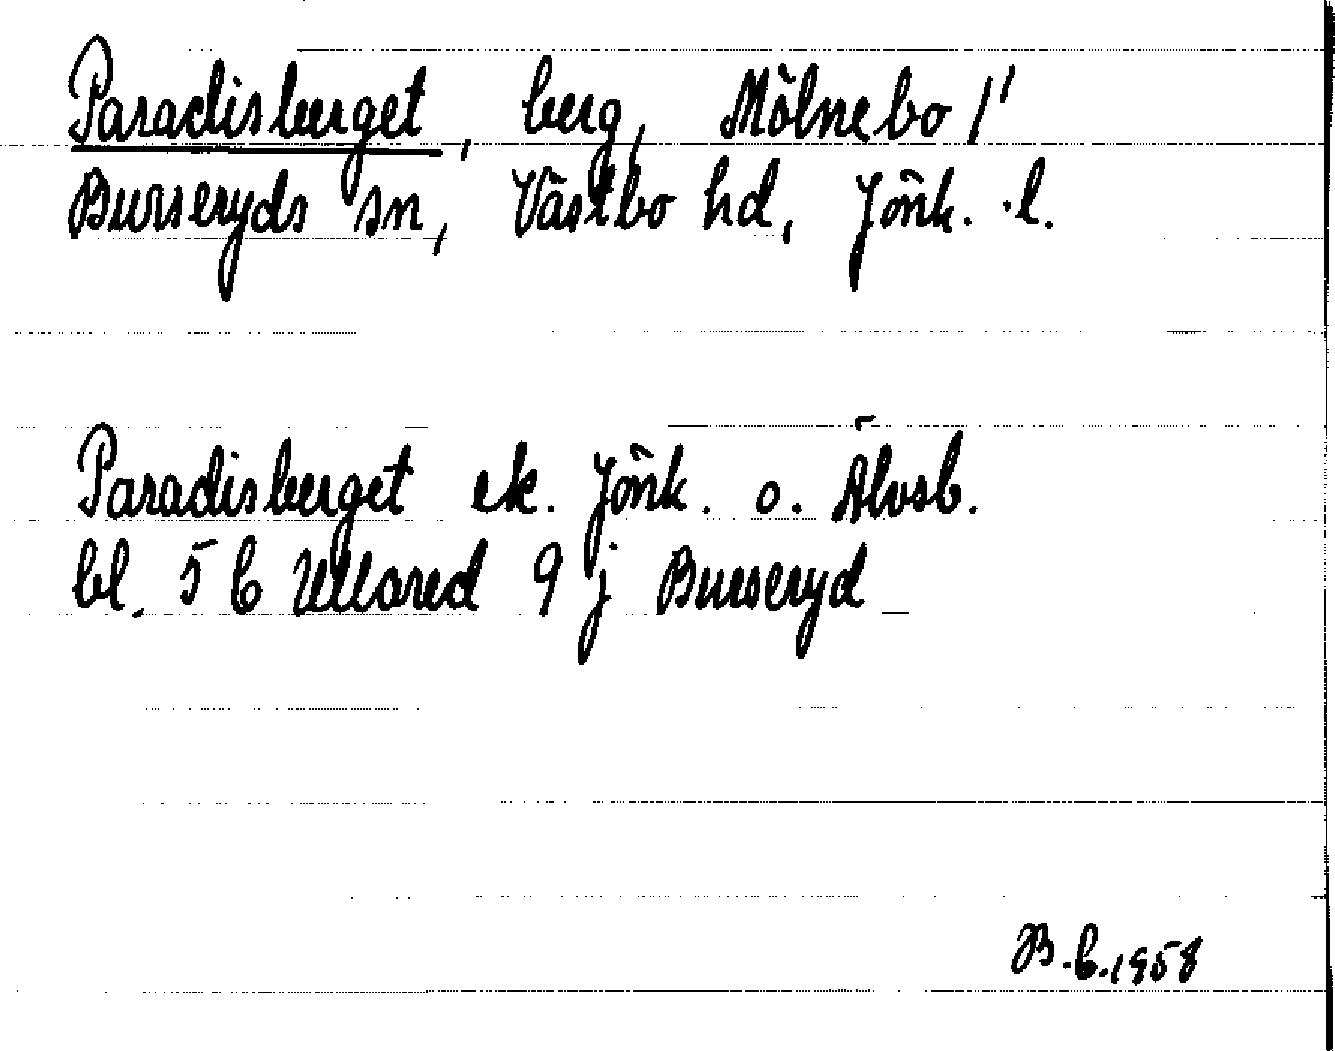 Paradisberget, berg, Mölnebo 1'
Burseryds sn, Västbo hd, Jönk. l.
Paradisberget ek. Jönk. o. Älvsb.
bl. 5 C Ullared 9 j Burseryd
B.C. 1958